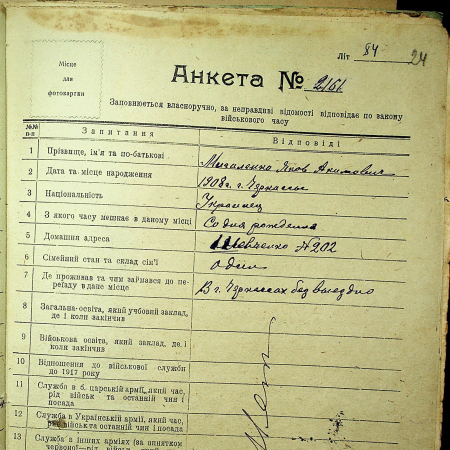 Літ 84 24
Місце
для
фотокарган
Анкета № 2161
Заповнюється власноручно, за неправдиві відомості відповідає по закону
військового часу
№№
п-п
Запитання
Відповіді
1 Прізвище, ім'я та по-батькові
Михаленко Яков Акимович
2 Дата та місце народження
1908 г. г. Черкассы
3 Національність
Украинец
4 З якого часу мешкає в даному місці
Со дня рождения
5 Домашня адреса
Шевченко № 202
6 Сімейний стан та склад сім'ї
один
7 Де проживав та чим займався до пе-
реїзду в дане місце
В г. Черкассах безвыездно
8 Загальна-освіта, який учбовий заклад,
де і коли закінчив
9 Військова освіта, який заклад, де і
коли закінчив
10 Відношення до військової служби
до 1917 року
11 Служба в б. царській армії, який час,
рід військ та останній чин і
посада
12 Служба в Українській армії, який час,
рід військ та останній чин і посада
13 Служба в інших арміях (за винятком